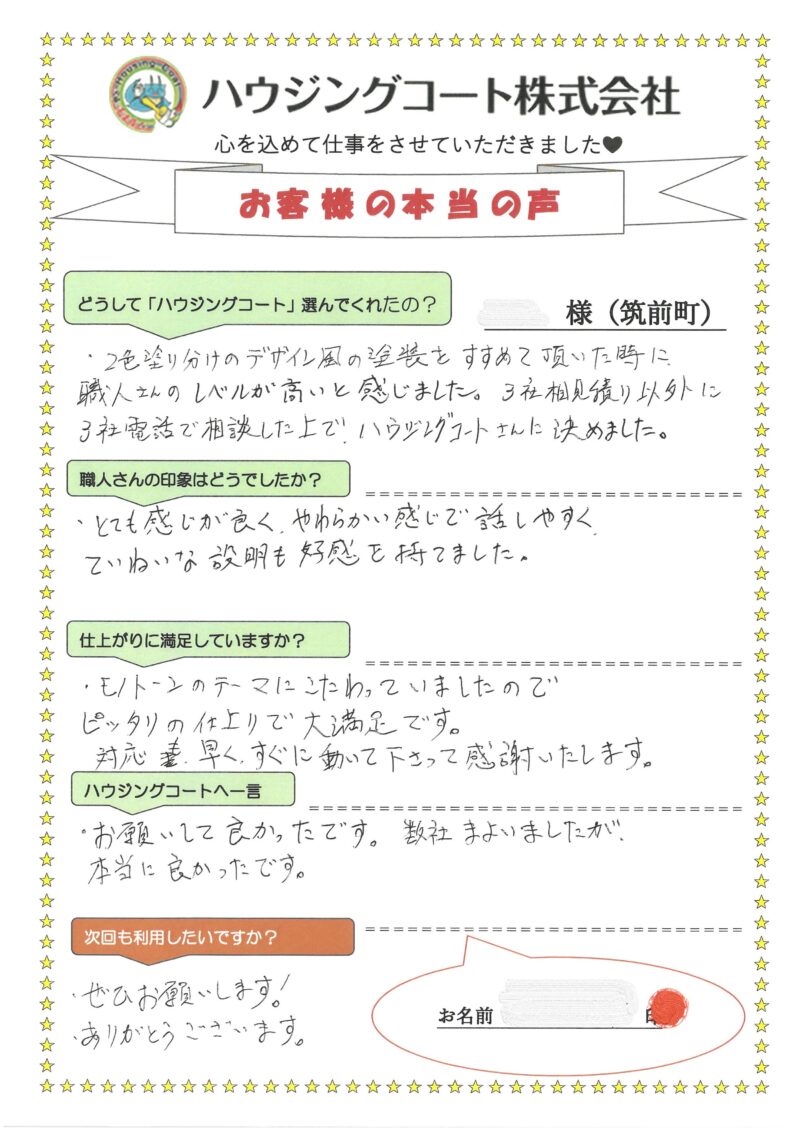 ハウジングコート株式会社
心を込めて仕事をさせていただきました♥
お客様の本当の声
どうして「ハウジングコート」選んでくれたの？
様（筑前町）
・2色塗り分けのデザイン風の塗装をすすめて頂いた時に
職人さんのレベルが高いと感じました。3社相見積り以外に
3社電話で相談した上で、ハウジングコートさんに決めました。
職人さんの印象はどうでしたか？
・とても感じが良く、やわらかい感じで話しやすく、
ていねいな説明も好感を持てました。
仕上がりに満足していますか？
・モノトーンのテーマにこだわっていましたので
ピッタリの仕上りで大満足です。
対応早く、すぐに動いて下さって感謝いたします。
ハウジングコートへ一言
・お願いして良かったです。数社まよいましたが、
本当に良かったです。
次回も利用したいですか？
・ぜひお願いします!
・ありがとうございます。
お名前